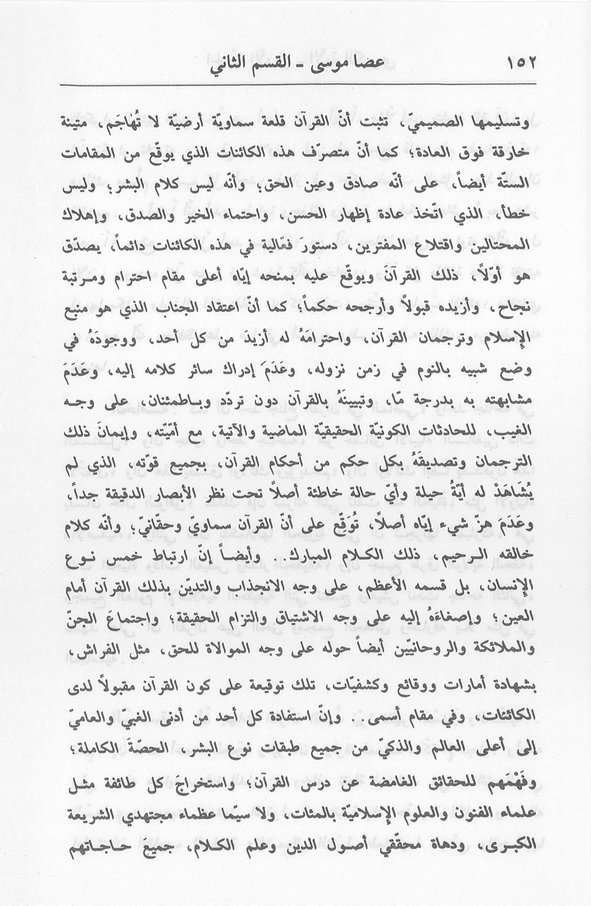 ١٥٢ عصا موسى ـ القسم الثاني
وتسليمها الصميميّ، تثبت أنّ القرآن قلعة سماويّة أرضيّة لا تُهاجَم، متينة
خارقة فوق العادة؛ كما أنّ متصرّف هذه الكائنات الذي يوقّع من المقامات
الستّة أيضاً، على أنّه صادق وعين الحق؛ وأنّه ليس كلام البشر؛ وليس
خطأ، الذي اتّخذ عادة إظهار الحسن، واحتماء الخير والصدق، وإهلاك
المحتالين واقتلاع المفترين، دستورَ فعّالية في هذه الكائنات دائماً، يصدّق
هو أوّلاً، ذلك القرآنَ ويوقّع عليه بمنحه إيّاه أعلى مقام احترام ومـرتبة
نجاح، وأزيده قبولاً وأرجحه حكماً؛ كما أنّ اعتقاد الجناب الذي هو منبع
الإسلام وترجمان القرآن، واحترامَهُ له أزيدَ من كل أحد، ووجودَهُ في
وضع شبيه بالنوم في زمن نزوله، وعَدَمَ إدراك سائر كلامه إليه، وعَدَمَ
مشابهته به بدرجة مّا، وتبيينَهُ بالقرآن دون تردّد وبـاطمئنان، على وجـه
الغيب، للحادثات الكونيّة الحقيقيّة الماضية والآتية، مع أمّيّته، وإيمانَ ذلك
الترجمان وتصديقَهُ بكل حكم من أحكام القرآن، بجميع قوّته، الذي لم
يُشَاهَدْ له أيّةُ حيلة وأيّ حالة خاطئة أصلاً تحت نظر الأبصار الدقيقة جداً،
وعَدَمَ هزّ شيء إيّاه أصلاً، تُوَقِّع على أنّ القرآن سماويّ وحقّانيّ؛ وأنّه كلام
خالقه الـرحيم، ذلك الكـلام المبارك.. وأيضـاً إنّ ارتباط خمس نـوع
الإنسان، بل قسمه الأعظم، على وجه الانجذاب والتديّن بذلك القرآن أمام
العين؛ وإصغاءَهُ إليه على وجه الاشتياق والتزام الحقيقة؛ واجتماعَ الجنّ
والملائكة والروحانيّين أيضاً حوله على وجه الموالاة للحق، مثل الفراش،
بشهادة أمارات ووقائع وكشفيّات، تلك توقيعة على كون القرآن مقبولاً لدى
الكائنات، وفي مقام أسمى.. وإنّ استفادة كل أحد من أدنى الغبيّ والعاميّ
إلى أعلى العالم والذكيّ من جميع طبقات نوع البشر، الحصّةَ الكاملة؛
وفَهْمَهم للحقائق الغامضة عن درس القرآن؛ واستخراجَ كل طائفة مثـل
علماء الفنون والعلوم الإسلاميّة بالمئات، ولا سيّما عظماء مجتهدي الشريعة
الكبـرى، ودهاة محقّقي أصـول الدين وعلم الكـلام، جميعَ حـاجـاتهم